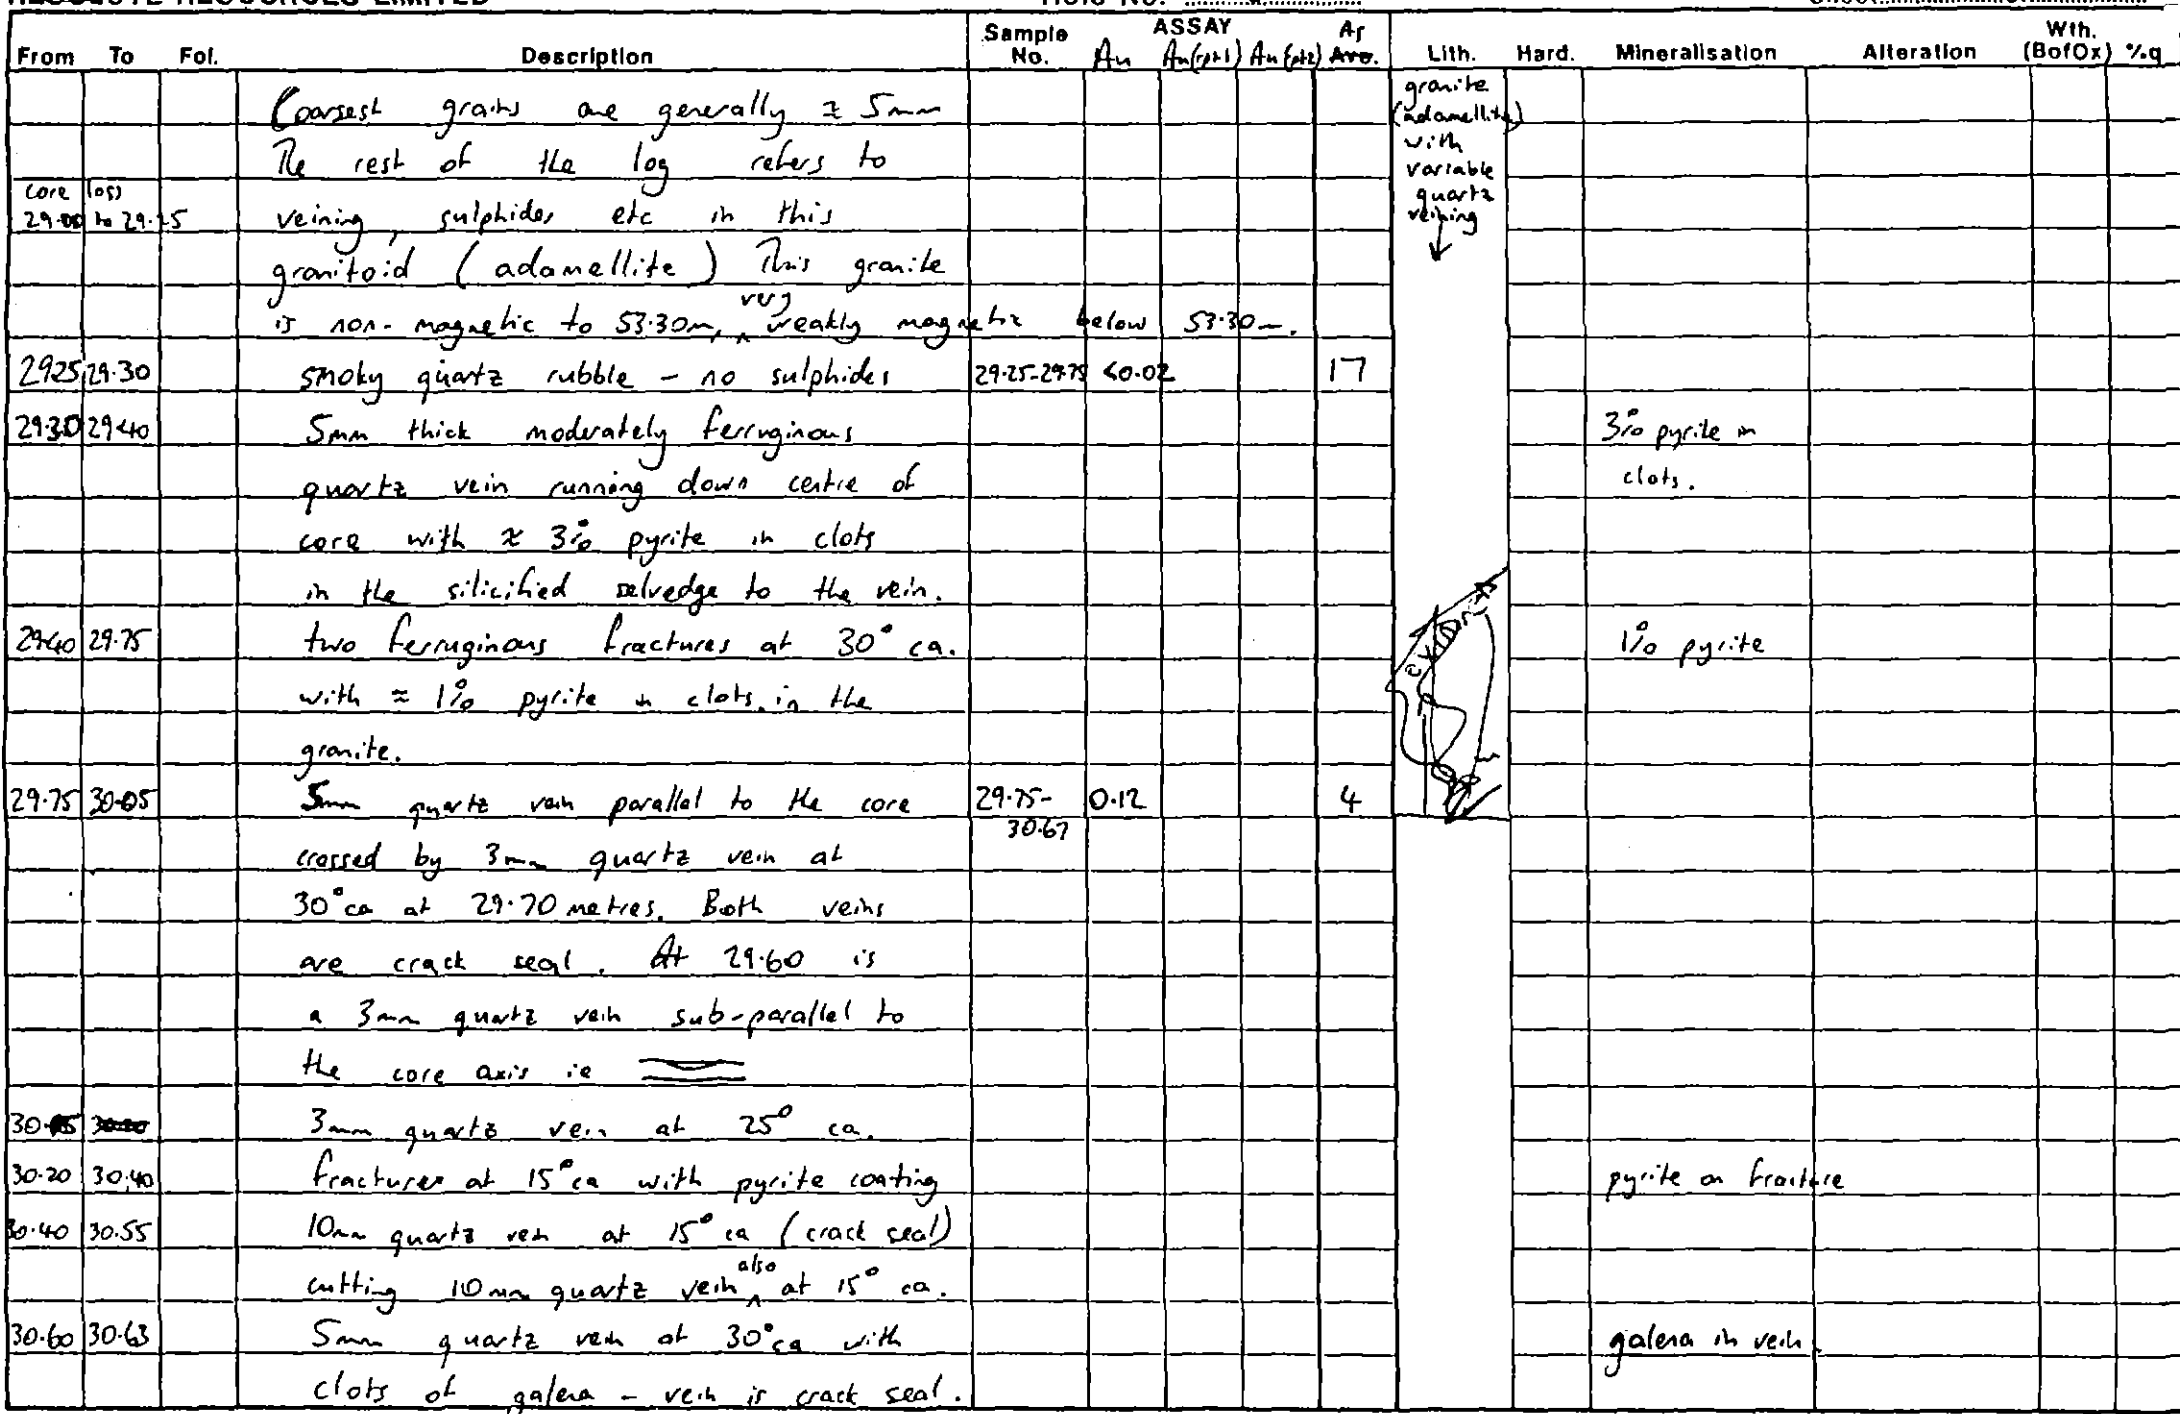 RESOLUTE RESOURCES LIMITED Hole No. Sheet
From To Fol. Description Sample No. ASSAY Au Au(rpt1) Au(rpt2) As Ave. Lith. Hard. Mineralisation Alteration Wth. (BofOx) %q
Coarsest grains are generally ≈ 5mm granite
The rest of the log refers to (adamellite) with variable
core loss
29.00 to 29.25 veining, sulphides etc in this quartz veining ↓
granitoid (adamellite) This granite
is non-magnetic to 53.30m, very weakly magnetic below 53.30m.
2925 29.30 smoky quartz rubble - no sulphides 29.25-29.75 <0.02 17
29.30 29.40 5mm thick moderately ferruginous 3% pyrite in
quartz vein running down centre of clots.
core with ≈ 3% pyrite in clots
in the silicified selvedge to the vein.
29.40 29.75 two ferruginous fractures at 30° ca. 1% pyrite
with ≈ 1% pyrite in clots in the
granite.
29.75 30.05 5mm quartz vein parallel to the core 29.75- 0.12 4
30.67
crossed by 3mm quartz vein at
30° ca at 29.70 metres. Both veins
are crack seal. At 29.60 is
a 3mm quartz vein sub-parallel to
the core axis ie
3mm quartz vein at 25° ca.
30.20 30.40 fractures at 15° ca with pyrite coating pyrite on fracture
30.40 30.55 10mm quartz vein at 15° ca (crack seal)
cutting 10mm quartz vein also at 15° ca.
30.60 30.63 5mm quartz vein at 30° ca with galena in vein.
clots of galena - vein is crack seal.